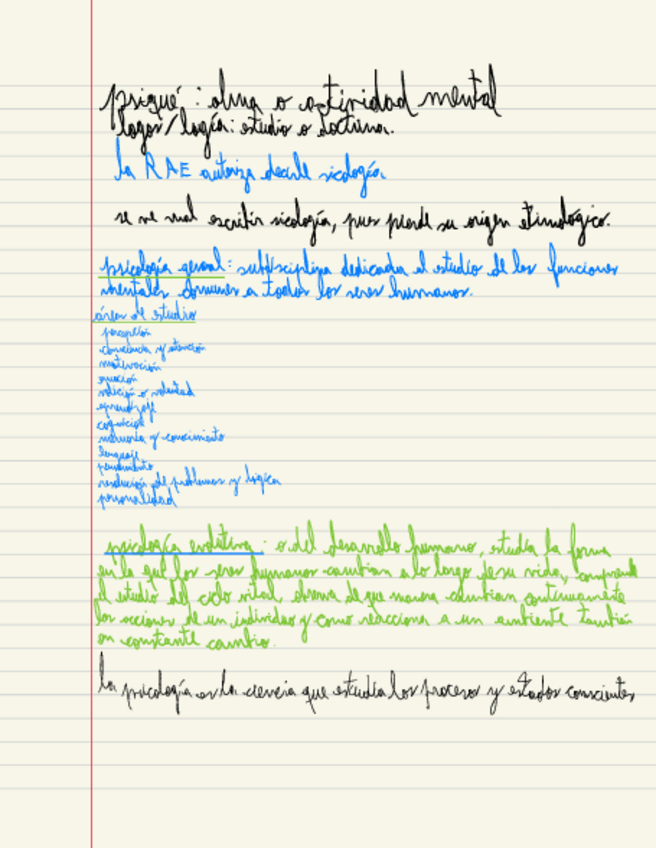 psiqué: alma o actividad mental
logos/logía: estudio o doctrina.
la RAE autoriza decirle sicología.
se ve mal escribir sicología, pues pierde su origen etimologico.
psicología general: subdisciplina dedicada al estudio de las funciones
mentales comunes a todos los seres humanos.
áreas de estudio
percepción
conciencia y atención
motivación
emoción
volición o voluntad
aprendizaje
cognición
memoria y conocimiento
lenguaje
pensamiento
resolución de problemas y lógica
personalidad
psicología evolutiva: o del desarrollo humano, estudia la forma
en la que los seres humanos cambian a lo largo de su vida, comprende
el estudio del ciclo vital, observa de que manera cambian continuamente
las acciones de un individuo y como reacciona a un ambiente también
en constante cambio.
la psicología es la ciencia que estudia los procesos y estados conscientes